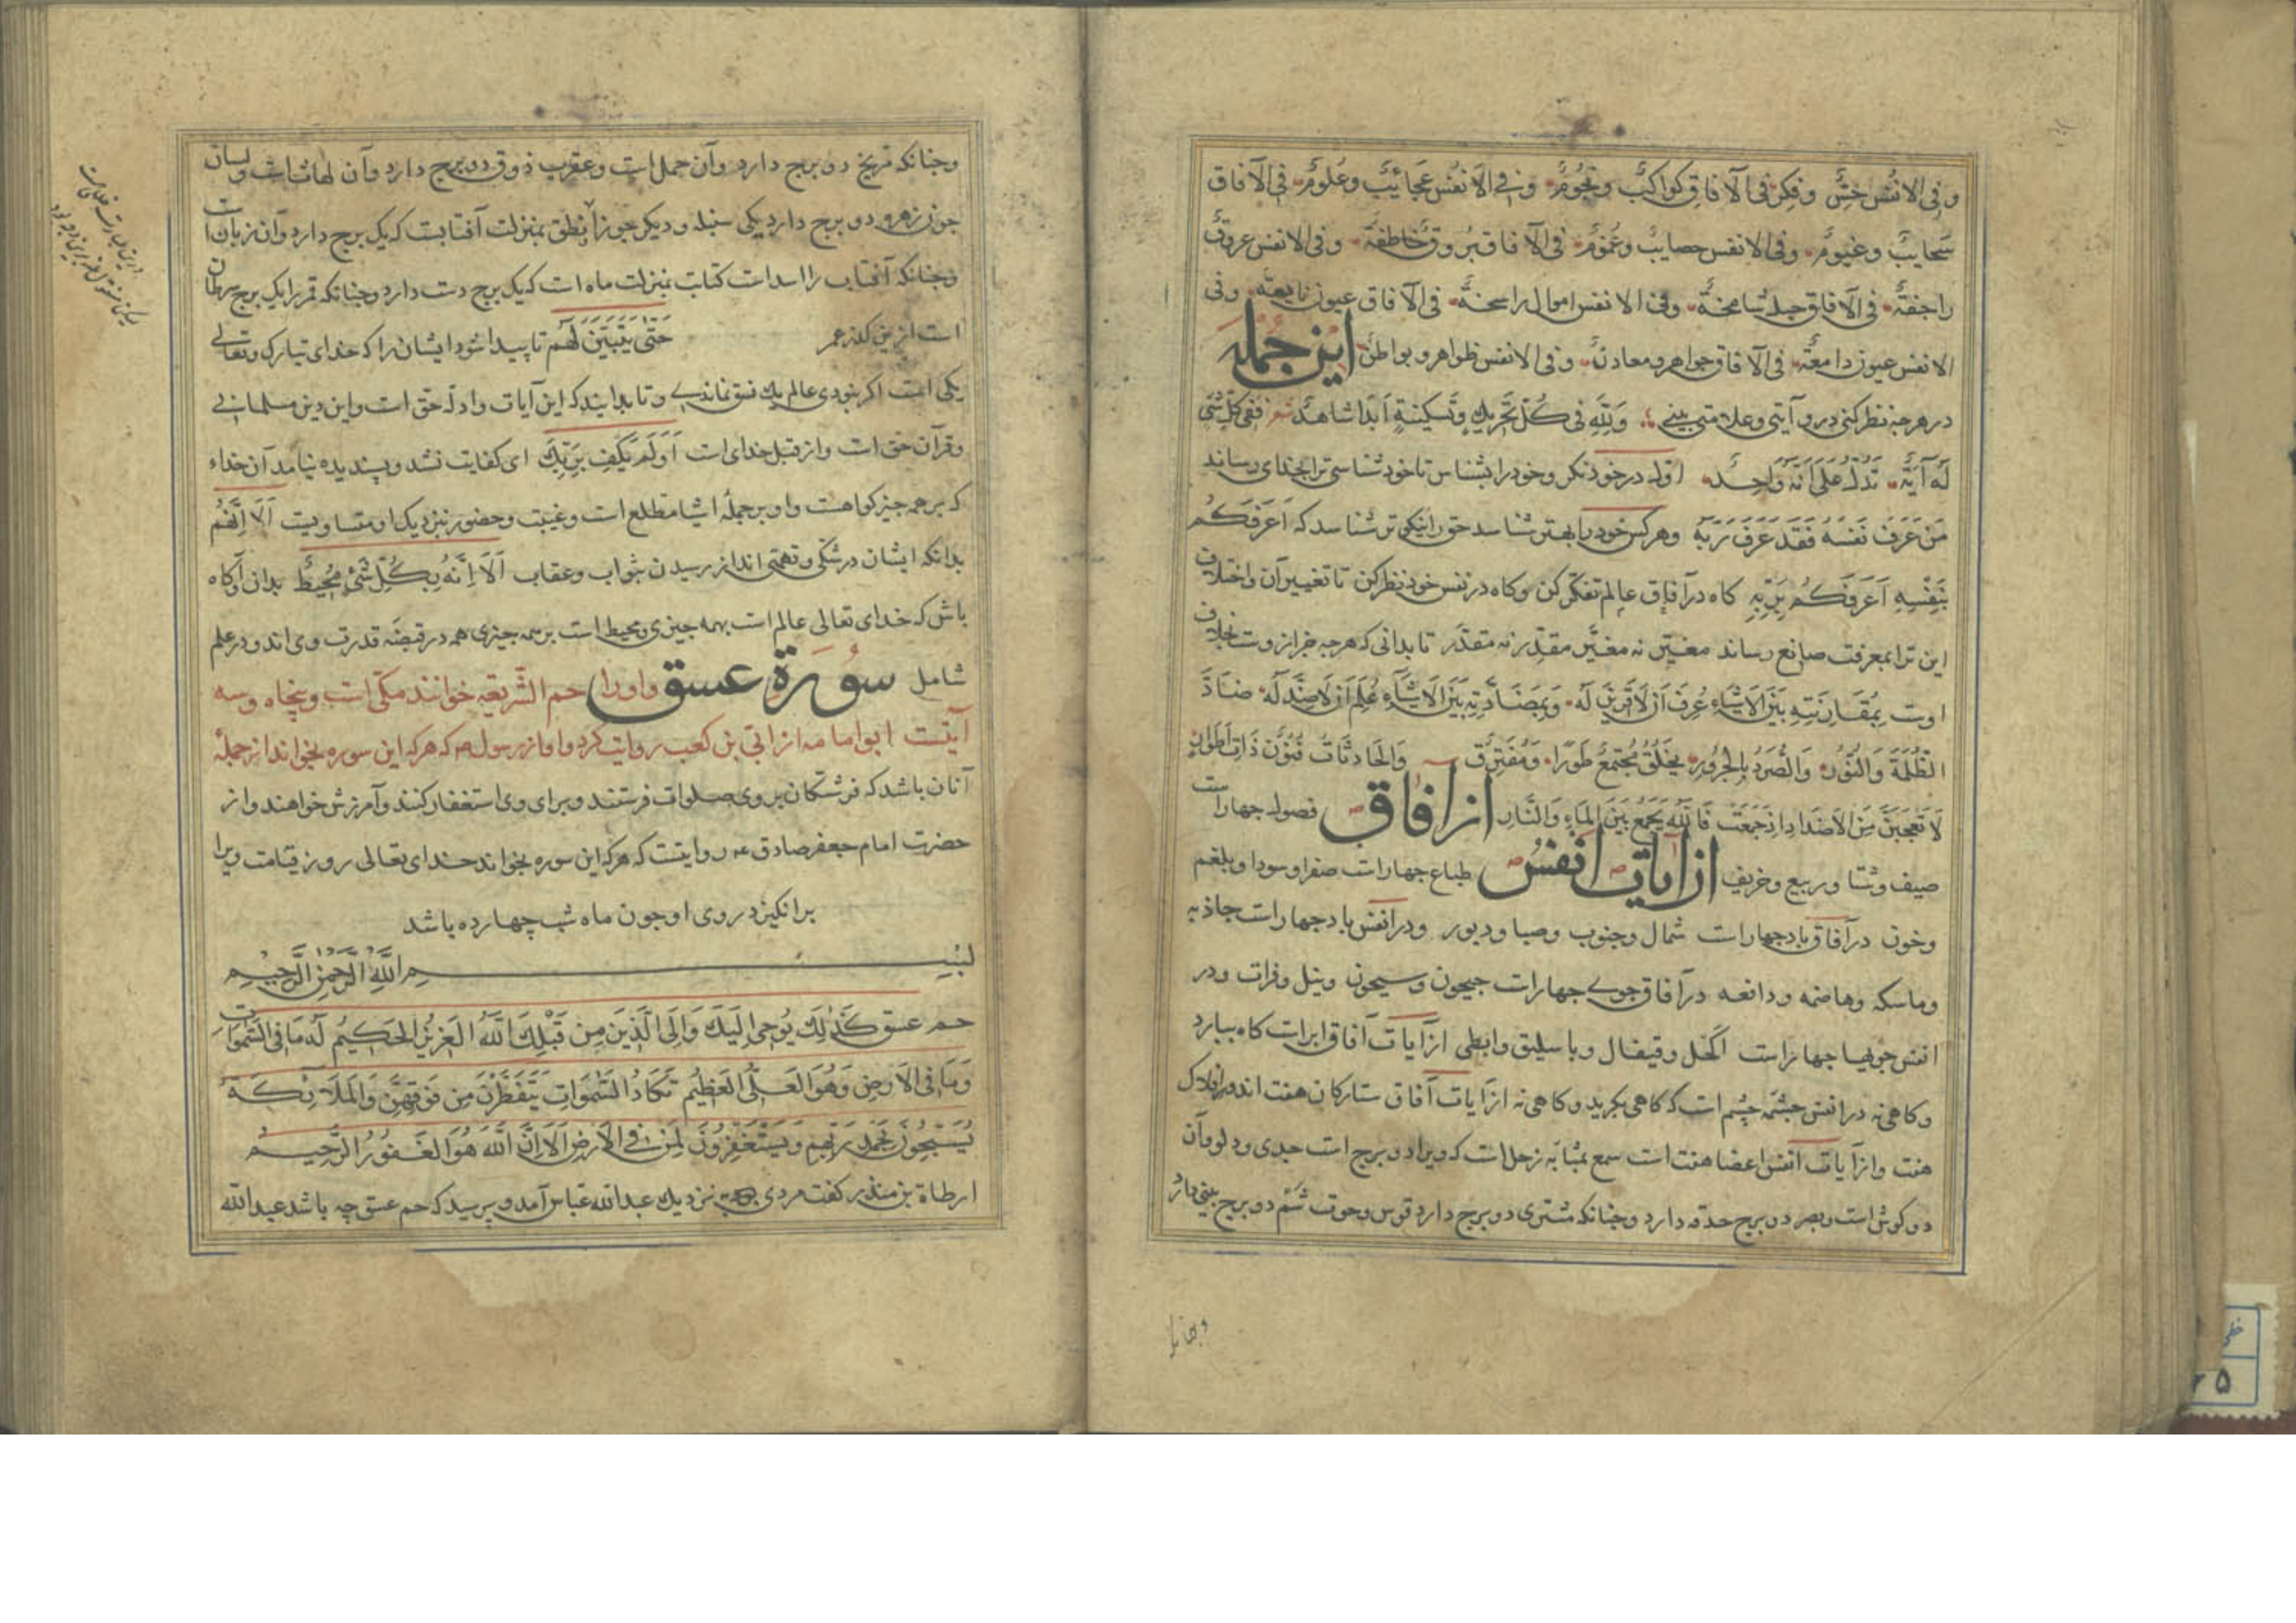 و فی الانفس حسٌّ وفکر فی الآفاق کواکبٌ ونجومٌ وفی الانفس عجائبٌ وعلومٌ فی الآفاق
سحایبٌ وغیومٌ وفی الانفس مصایبٌ وغمومٌ فی الآفاق بروقٌ خاطفةٌ وفی الانفس عروقٌ
راجفةٌ فی الآفاق جبال شامخةٌ وفی الانفس امال راسخةٌ فی الآفاق عیون نابعةٌ وفی
الانفس عیون دامعةٌ فی الآفاق جواهر ومعادنٌ وفی الانفس ظواهر وبواطنٌ این جمله
در هر چه نظر کنی درو آیتی وعلامتی بینی وَلِلّهِ فی کُلِّ تَحْریکٍ وَتَسْکینَةٍ اَبَداً شاهِدٌ شعر ففی کلّ شئ
لَهُ آیَةٌ تَدُلُّ عَلی اَنَّهُ وَاحِدٌ اوّل در خود نکر وخود را بشناس تا خود شناسی ترا بخدای رساند
مَنْ عَرَفَ نَفْسَهُ فَقَدْ عَرَفَ رَبَّهُ وهر کس خود را بهتر شناسد حق را نیکوتر شناسد که اَعْرَفُکُمْ
بِنَفْسِهِ اَعْرَفُکُمْ بِرَبِّهِ کاه در آفاق عالم تفکر کن وکاه در نفس خود نظر کن تا تغییر آن واختلاف
این ترا بمعرفت صانع رساند مغیّر نه مغیَّر مقدِّر نه مقدَّر تا بدانی که هر چه جز ازوست بخلاف
اوست بِمُقَارَنَتِهِ بَیْنَ الاَشْیَاءِ عُرِفَ اَنْ لاَ قَرینَ لَهُ وَبِمُضَادَّتِهِ بَیْنَ الاَشْیَاءِ عُلِمَ اَنْ لاَ ضِدَّ لَهُ ضَادَّ
الظُّلْمَةَ وَالنُّورَ وَالصَّرْدَ بِالْحَرُورِ بخَلْقٍ مُجْتَمِعٌ طَوْرًا وَمُفْتَرِقٌ وَالْحَادِثَاتُ فُنُونٌ ذَاتُ اَطْوَارٍ
لاَ تَعْجَبَنَّ مِنَ الاَضْدَادِ اِنْ جُمِعَتْ فَاللّهُ یَجْمَعُ بَیْنَ المَاءِ وَالنَّارِ از افاق فصول چهار است
صیف وشتا وربیع وخریف از ایات انفس طبایع چهار است صفرا وسودا وبلغم
وخون در آفاق باد چهار است شمال وجنوب وصبا ودبور ودر انفس باد چهار است جاذبه
وماسکه وهاضمه ودافعه در آفاق جوی چهار است جیحون وسیحون ونیل وفرات ودر
انفس جویها چهار است اکحل وقیفال وباسلیق وابطی از آیات آفاق ابر است کاه ببارد
وکاهی نه در انفس چشمه چشم است که کاهی بکرید وکاهی نه از آیات آفاق ستارکان هفت اند در افلاک
هفت واز آیات انفس اعضا هفت است سمع بمثابه زحل است که ویرا دو برج است جدی ودلو وآن
دو کوش است وبصر دو برج حدقه دارد وچنانکه مشتری دو برج دارد قوس وحوت شم دو برج بینی دارد
وچنانکه
وچنانکه مریخ دو برج دارد وآن حمل است وعقرب ذوق دو برج دارد وآن لهات است ولسان
چون زهره دو برج دارد یکی سنبله ودیکر جوزا نطق بمنزلت آفتابست که یک برج دارد وآن زبان است
وچنانکه آفتاب را اسد است کتابت بمنزلت ماه است که یک برج دست دارد وچنانکه قمر را یک برج سرطان
است ازین کذر عمر حَتّی یَتَبَیَّنَ لَهُمْ تا پیدا شود ایشان را که خدای تبارک وتعالی
یکی است اکر نبودی عالم یک نسق نماندی وتا بدانید که این آیات وادله حق است واین دین مسلمانی
وقرآن حق است واز قبل خدای است اَوَلَمْ یَکْفِ بِرَبِّکَ ای کفایت نشد وپسندیده نیامد آن خداء
که بر همه چیز کواهست واو بر جملهٔ اشیا مطلع است وغیبت وحضور نزدیک او متساویست اَلاَ اِنَّهُمْ
بدانکه ایشان در شکی وتهمتی اند از رسیدن ثواب وعقاب اَلاَ اِنَّهُ بِکُلِّ شَئٍ مُحیطٌ بدان وآکاه
باش که خدای تعالی عالم است بهمه چیزی ومحیط است بر همه چیزی همه در قبضه قدرت وی اند ودر علم
شامل سورة عسق واورا حم الشریعه خوانند مکی است وپنجاه وسه
آیتست ابو امامه از ابّی بن کعب روایت کرد واو از رسول ص که هر که این سوره بخواند از جملهٔ
آنان باشد که فرشتکان بر وی صلوات فرستند وبرای وی استغفار کنند وآمرزش خواهند واز
حضرت امام جعفر صادق ع روایتست که هر که این سوره بخواند خدای تعالی روز قیامت ویرا
برانکیزد روی او چون ماه شب چهارده باشد
بسم الله الرّحمن الرّحیم
حم عسق کَذلِکَ یُوحی اِلَیْکَ وَاِلَی الَّذینَ مِنْ قَبْلِکَ اللّهُ العَزیزُ الحَکیمُ لَهُ مَا فِی السَّموَاتِ
وَمَا فِی الاَرْضِ وَهُوَ العَلِیُّ العَظیمُ تَکَادُ السَّموَاتُ یَتَفَطَّرْنَ مِنْ فَوْقِهِنَّ وَالمَلاَئِکَةُ
یُسَبِّحُونَ بِحَمْدِ رَبِّهِمْ وَیَسْتَغْفِرُونَ لِمَنْ فِی الاَرْضِ اَلاَ اِنَّ اللّهَ هُوَ الغَفُورُ الرَّحیمُ
ارطاة بن منذر کفت مردی نزدیک عبد الله عباس آمد وپرسید که حم عسق چه باشد عبد الله
خطی
۵